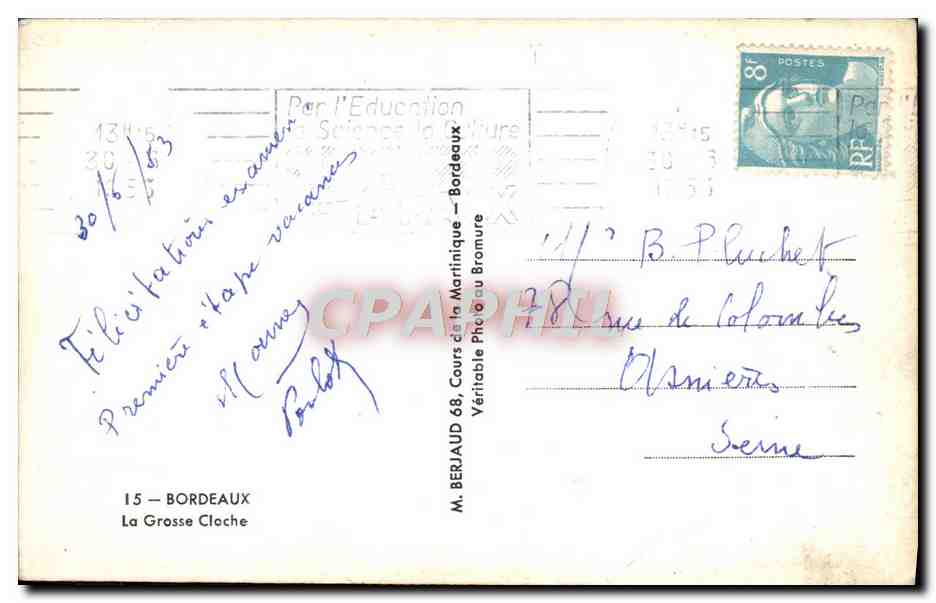 8F
POSTES
RF
Par l'Education
la Science la Culture
13H15
30
13H15
30
30/6/53
Félicitations examen.
Première étape vacances
B. Pluchet
78 rue de Colombes
Asnières
Seine
15 — BORDEAUX
La Grosse Cloche
M. BERJAUD 68, Cours de la Martinique — Bordeaux
Véritable Photo au Bromure
CPAPHIL